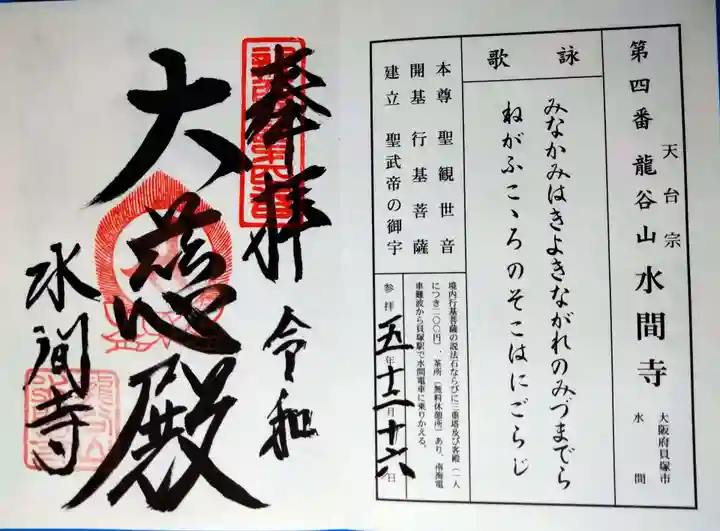 第四番
天台宗
龍谷山 水間寺
大阪府貝塚市
水間
詠歌
みなかみはきよきながれのみづまでら
ねがふこゝろのそこはにごらじ
本尊 聖観世音
開基 行基菩薩
建立 聖武帝の御宇
境内行基菩薩の説法石ならびに三重塔及び客殿(一人
につき二〇〇円)、茶所(無料休憩所)あり、南海電
車難波から貝塚駅で水間電車に乗りかえる。
参拝 五年十二月十六日
奉拝
令和
大慈殿
水間寺